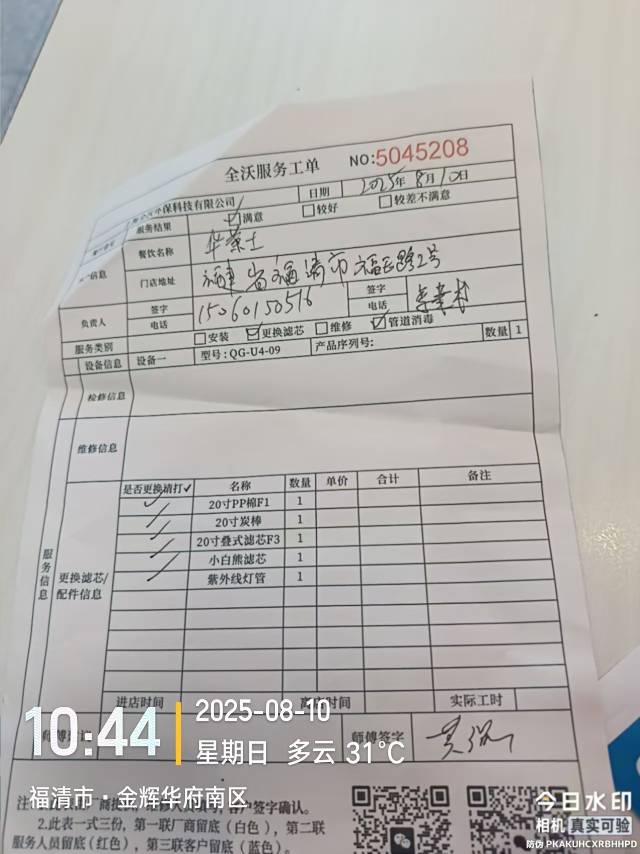 全沃服务工单 NO:5045208
环保科技有限公司 日期 2025年8月10日
服务结果 满意 较好 较差不满意
信息 餐饮名称 华莱士
门店地址 福建省福清市福百路2号
负责人 签字 电话 15060150516 签字 电话
服务类别 安装 更换滤芯 维修 管道消毒
设备信息 设备一 型号:QG-U4-09 产品序列号: 数量 1
检修信息
维修信息
服务信息
更换滤芯/配件信息
是否更换请打✓ 名称 数量 单价 合计 备注
✓ 20寸PP棉F1 1
✓ 20寸炭棒 1
✓ 20寸叠式滤芯F3 1
✓ 小白熊滤芯 1
✓ 紫外线灯管 1
进店时间 离店时间 实际工时
师傅签字
10:44
2025-08-10
星期日 多云 31℃
福清市·金辉华府南区
客户签字确认。
2.此表一式三份,第一联厂商留底(白色),第二联
服务人员留底(红色),第三联客户留底(蓝色)。
今日水印
相机 真实可验
防伪 PKAKUHCXRBHHPD